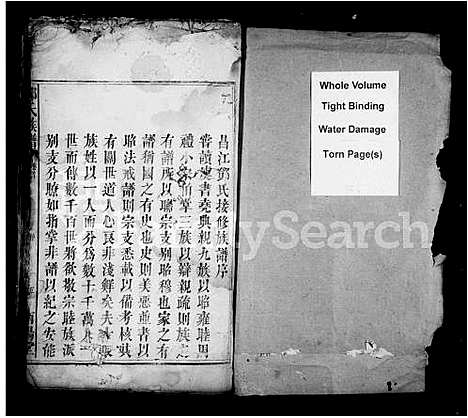 昌江鄧氏接修族譜序
嘗讀虞書堯典親九族以昭雍睦周
禮小宗伯掌三族以辯親疏則族之
有譜所以聯宗支別昭穆也家之有
譜猶國之有史也史則美惡並書以
昭法戒譜則宗支悉載以備考核其
有關世道人心良非淺鮮矣夫
族姓以一人而分爲數十千萬人
世而傳數千百世將欲散宗睦族派
別支分瞭如指掌非譜以紀之安能
Whole Volume
Tight Binding
Water Damage
Torn Page(s)
Search